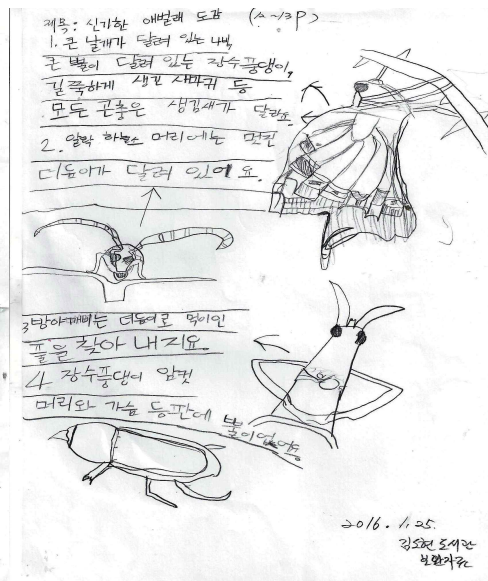 제목: 신기한 애벌래 도감 (~13P)
1. 큰 날개가 달려 있는 나비,
큰 뿔이 달려 있는 장수풍댕이,
길쭉하게 생긴 사마귀 등
모든 곤충은 생김새가 달라요.
2. 알락 하늘소 머리에는 멋진
더듬이가 달려 있어요.
3 방아깨비는 더듬이로 먹이인
풀을 찾아 내지요.
4. 장수풍댕이 암컷
머리와 가슴 등판에 뿔이 없어용
2016. 1. 25.
김도현 도서관